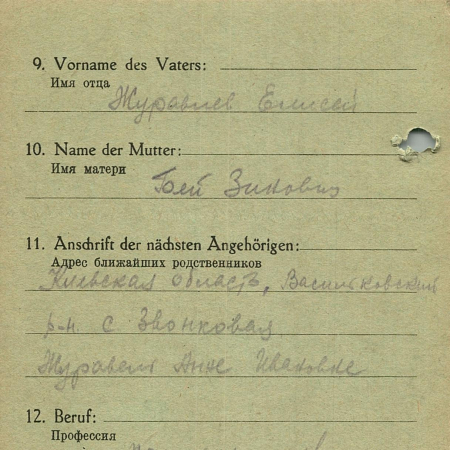 9. Vorname des Vaters:
Имя отца
Журавлев Елисей
10. Name der Mutter:
Имя матери
Зиновия
11. Anschrift der nächsten Angehörigen:
Адрес ближайших родственников
Киевская область, Васильковский
р-н с Звонковая
Журавель Анне Ивановне
12. Beruf:
Профессия